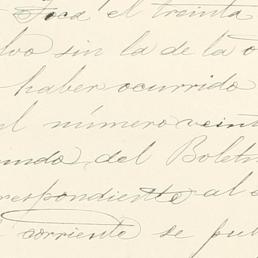 Toca el treinta
lvo sin la de la o
haber ocurrido
el número vein
undo, del Bolet
respondiente al
corriente se pu